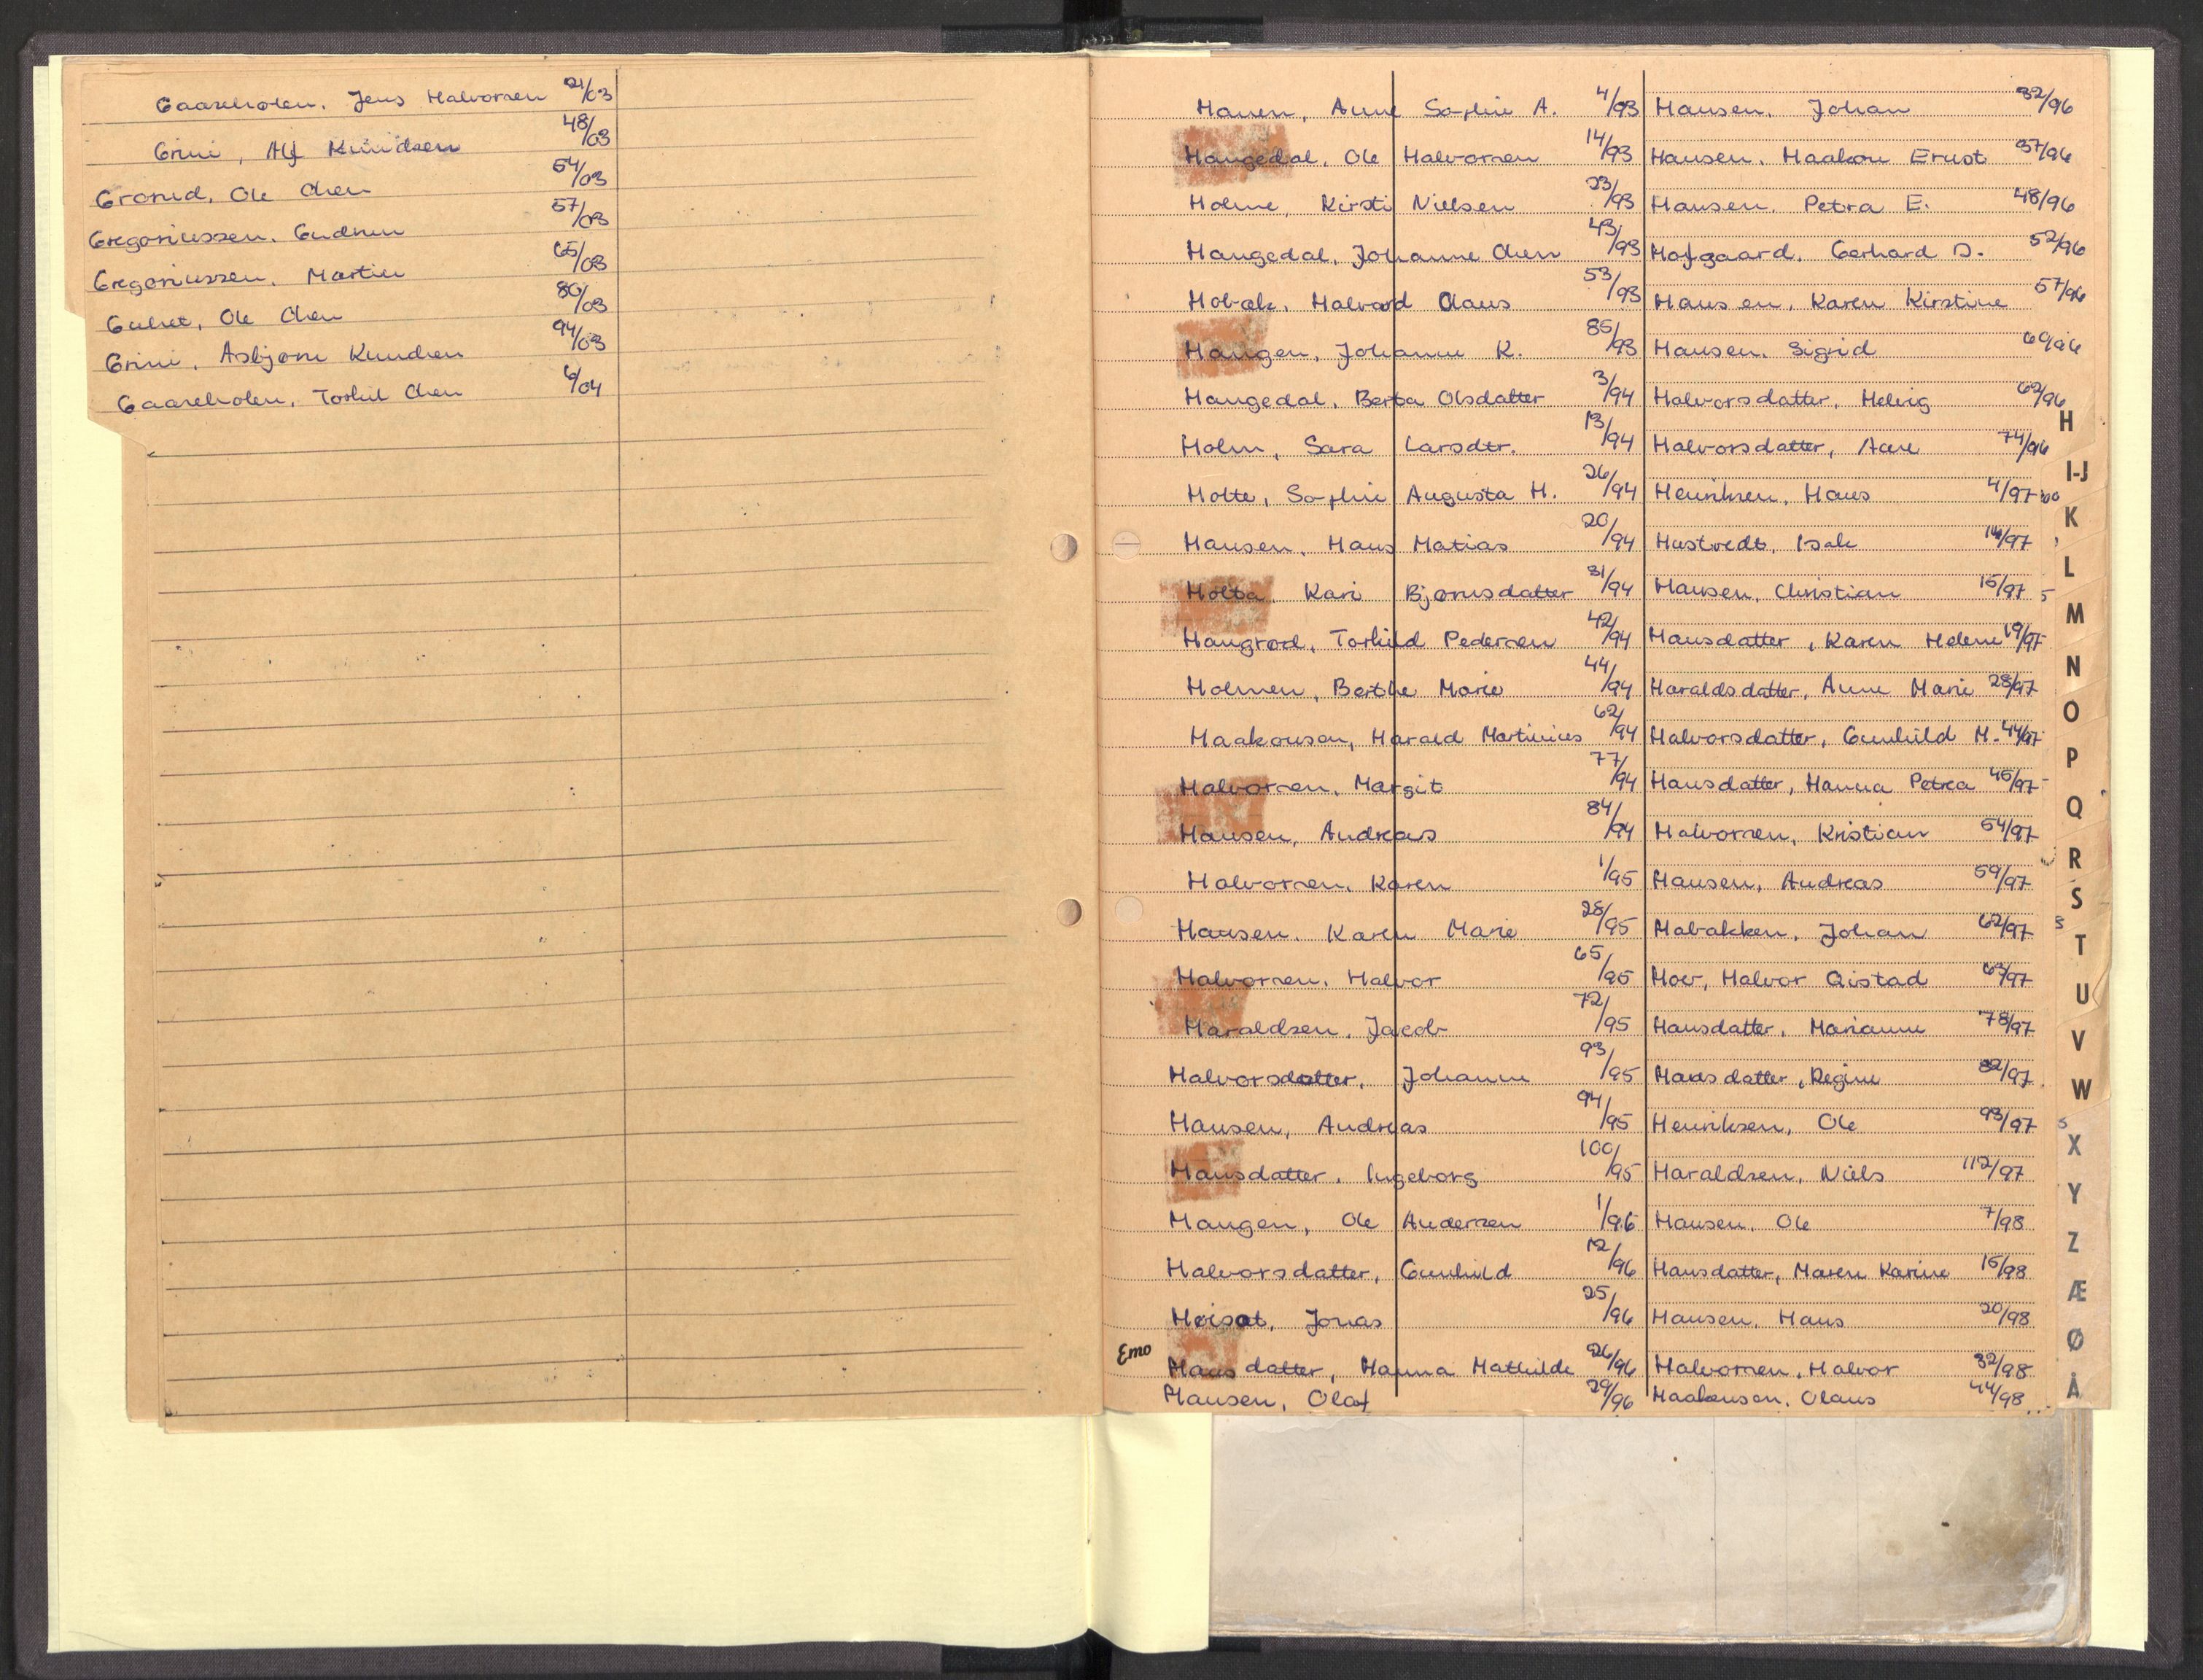 Gaaseholen, Jens Halvorsen 21/03
Grini, Alf Knudsen 48/03
Grosed, Ole Olsen 54/03
Gregoriussen, Gudrun 57/03
Gregoriussen, Martin 65/03
Gulset, Ole Olsen 80/03
Grini, Asbjørn Knudsen 94/03
Gaaseholen, Torhil Olsen 6/04
Hansen, Anne Sophie A. 4/93
Haugedal, Ole Halvorsen 14/93
Holme, Kirsti Nielsen 23/93
Haugedal, Johanne Olsen 43/93
Hobæk, Halvard Olaus 53/93
Haugen, Johanne K. 85/93
Haugedal, Berta Olsdatter 3/94
Holm, Sara Larsdtr. 13/94
Holte, Sophie Augusta H. 26/94
Hansen, Hans Matias 20/94
Holta, Kari Bjørnsdatter 31/94
Haugrød, Torhild Pedersen 42/94
Holmen, Berthe Marie 44/94
Haakonsen, Harald Martinius 62/94
Halvorsen, Margit 77/94
Hansen, Andreas 84/94
Halvorsen, Karen 1/95
Hansen, Karen Marie 28/95
Halvorsen, Halvor 65/95
Haraldsen, Jacob 72/95
Halvorsdatter, Johanne 93/95
Hansen, Andreas 94/95
Hansdatter, Ingeborg 100/95
Haugen, Ole Andersen 1/96
Halvorsdatter, Gunhild 12/96
Høisæt, Jonas 25/96
Emo
Hansdatter, Hanna Mathilde 26/96
Hansen, Olaf 29/96
Hansen, Johan 32/96
Hansen, Haakon Ernst 37/96
Hansen, Petra E. 48/96
Hofgaard, Gerhard D. 52/96
Hansen, Karen Kirstine 57/96
Hansen, Sigrid 69/96
Halvorsdatter, Helvig 62/96
Halvorsdatter, Aase 74/96
Henriksen, Hans 4/97
Hustvedt, Isak 14/97
Hansen, Christian 15/97
Hansdatter, Karen Helene 19/97
Haraldsdatter, Anne Marie 28/97
Halvorsdatter, Gunhild H. 44/97
Hansdatter, Hanna Petrea 45/97
Halvorsen, Kristian 54/97
Hansen, Andreas 59/97
Habakken, Johan 62/97
Hoer, Halvor Qvistad 63/97
Hansdatter, Marianne 78/97
Hansdatter, Regine 82/97
Henriksen, Ole 93/97
Haraldsen, Niels 112/97
Hansen, Ole 7/98
Hansdatter, Maren Karine 15/98
Hansen, Hans 20/98
Halvorsen, Halvor 32/98
Haakonsen, Olaus 44/98
H
I-J
K
L
M
N
O
P
Q
R
S
T
U
V
W
X
Y
Z
Æ
Ø
Å